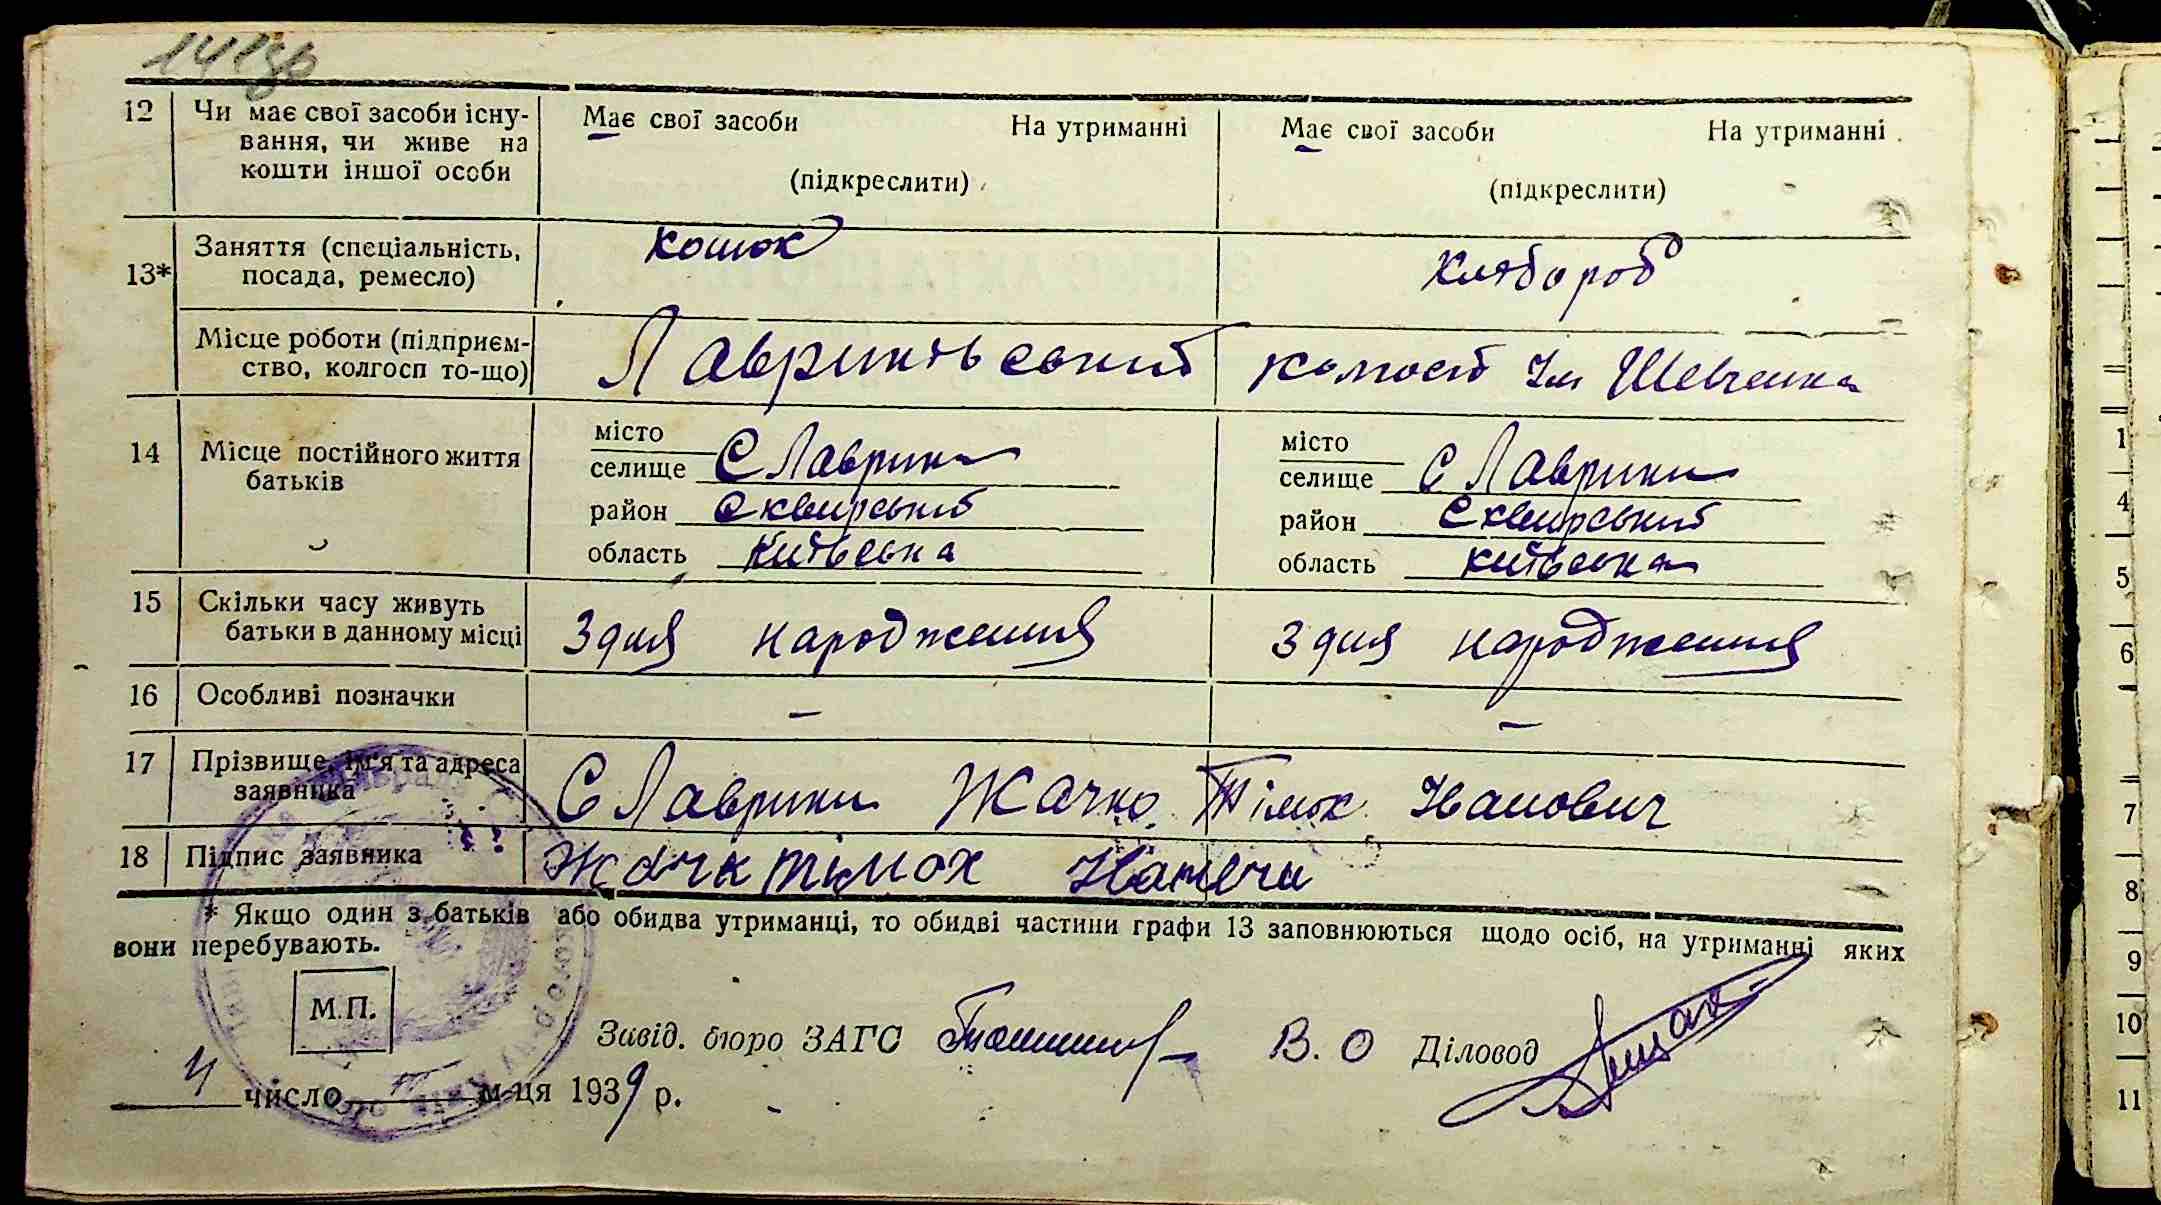 14 зр
12 Чи має свої засоби існу-
вання, чи живе на
кошти іншої особи
Має свої засоби На утриманні
(підкреслити)
Має свої засоби На утриманні
(підкреслити)
13* Заняття (спеціальність,
посада, ремесло)
конюх
хлібороб
Місце роботи (підприєм-
ство, колгосп то-що)
Лавриківський колгосп Ім Шевченка
14 Місце постійного життя
батьків
місто
селище С Лаврики
район Сквирський
область Київська
місто
селище С Лаврики
район Сквирський
область Київська
15 Скільки часу живуть
батьки в данному місці
З дня народження
З дня народження
16 Особливі позначки
–
–
17 Прізвище, ім'я та адреса
заявника
С Лаврики Жачко Тімох Іванович
18 Підпис заявника
Жачк тімох
* Якщо один з батьків або обидва утриманці, то обидві частини графи 13 заповнюються щодо осіб, на утриманні яких
вони перебувають.
М.П.
Завід. бюро ЗАГС
В. О Діловод
4 число м-ця 1939 р.
1
4
5
6
7
8
9
10
11